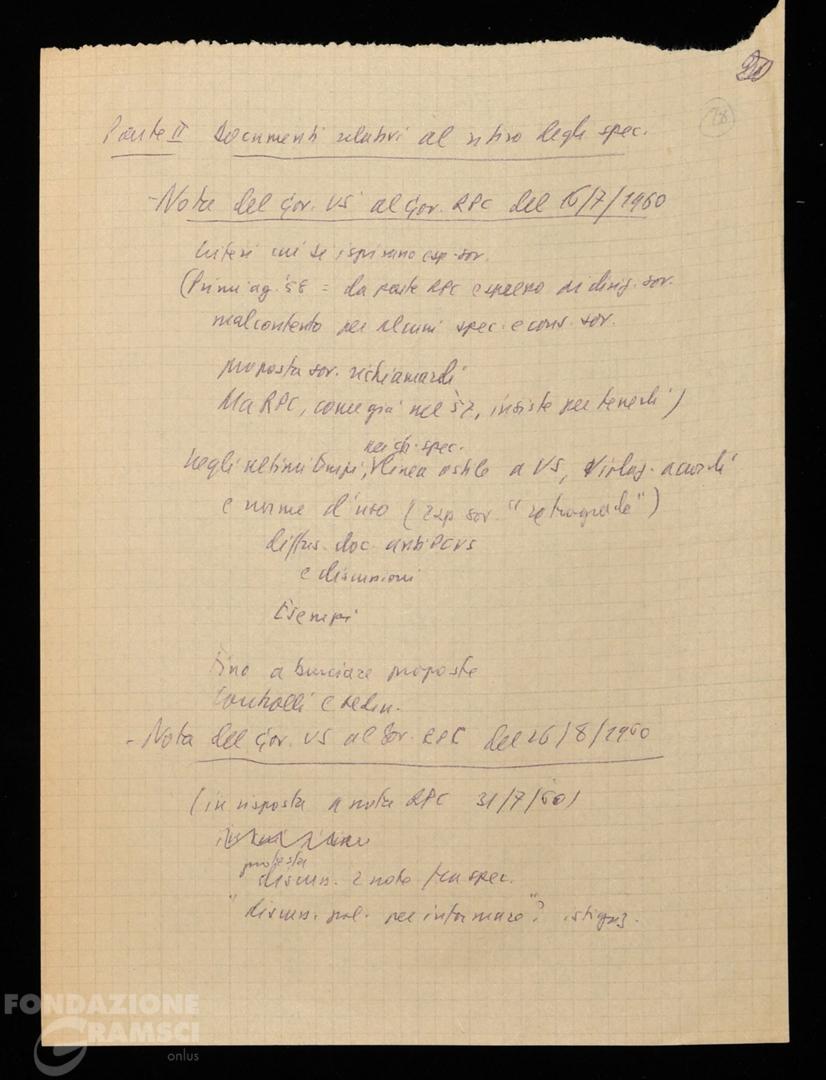 20
78
Parte II Documenti relativi al ritiro degli spec.
- Nota del Gov. US al Gov. RPC del 16/7/1960
Criteri cui si ispirano esp. sov.
(Primi ag. '58 = da parte RPC espresso di dirig. sov.
malcontento per alcuni spec. e cons. sov.
proposta sov. richiamarli
Ma RPC, come già nel '57, insiste per tenerli)
per gli spec.
Negli ultimi tempi, linea ostile a US, violaz. accordi
e norme d'uso (esp. sov. "retrograde")
diffus. doc. antiPCUS
e discussioni
Esempi
Fino a bruciare proposte
Controlli e
- Nota del Gov. US al Gov. RPC del 26/8/1960
(in risposta a nota RPC 31/7/60)
protesta
discuss. e note tra spec.
"discuss. pol. per informare"? istigaz.
FONDAZIONE
GRAMSCI
onlus